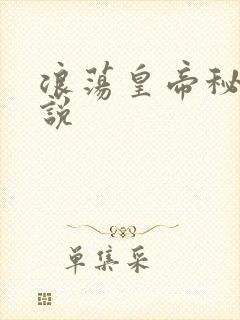 浪蕩皇帝秘
說
單集采